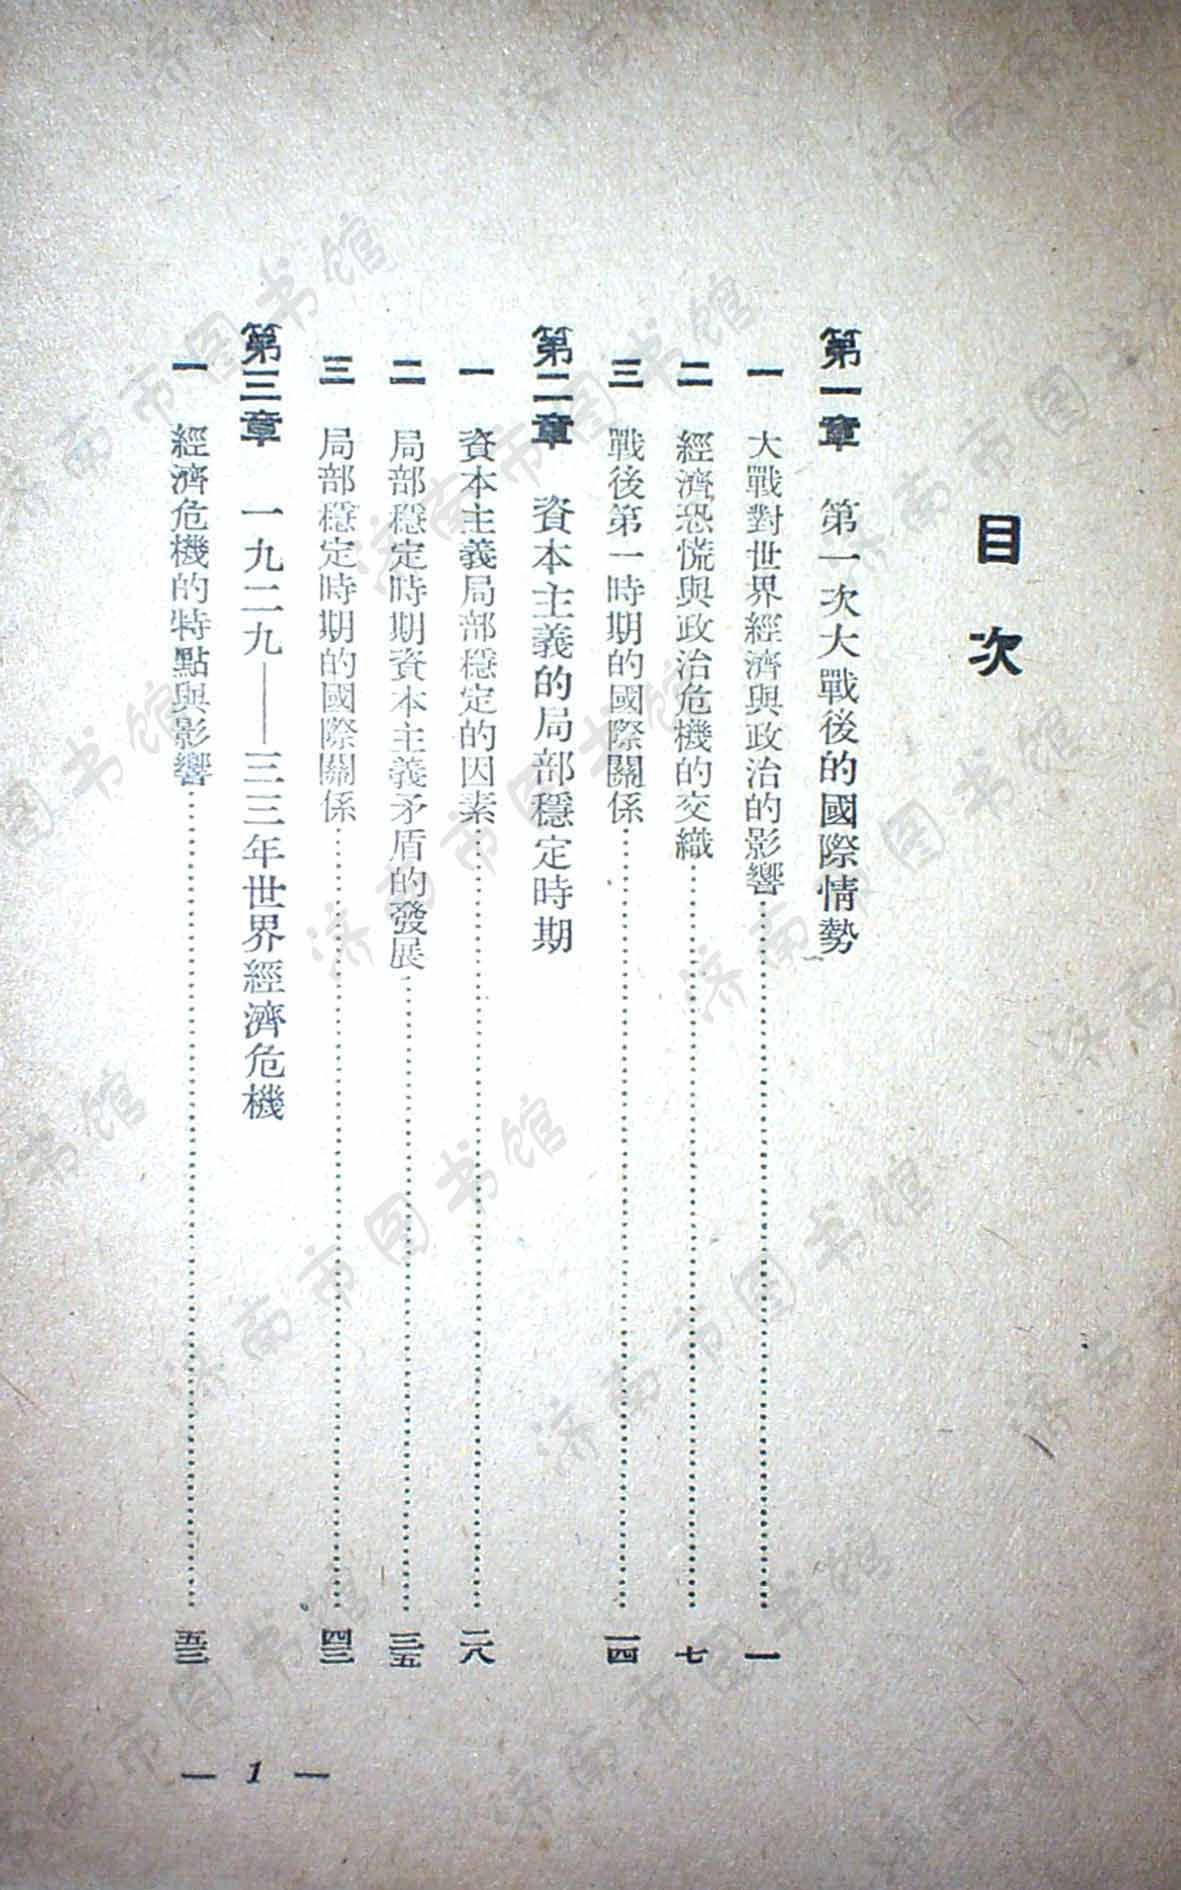 目次
第一章 第一次大戰後的國際情勢
一 大戰對世界經濟與政治的影響……一
二 經濟恐慌與政治危機的交織……七
三 戰後第一時期的國際關係……一四
第二章 資本主義的局部穩定時期
一 資本主義局部穩定的因素……二八
二 局部穩定時期資本主義矛盾的發展……三五
三 局部穩定時期的國際關係……四三
第三章 一九二九——三三年世界經濟危機
一 經濟危機的特點與影響……五三
— 1 —
济南市图书馆